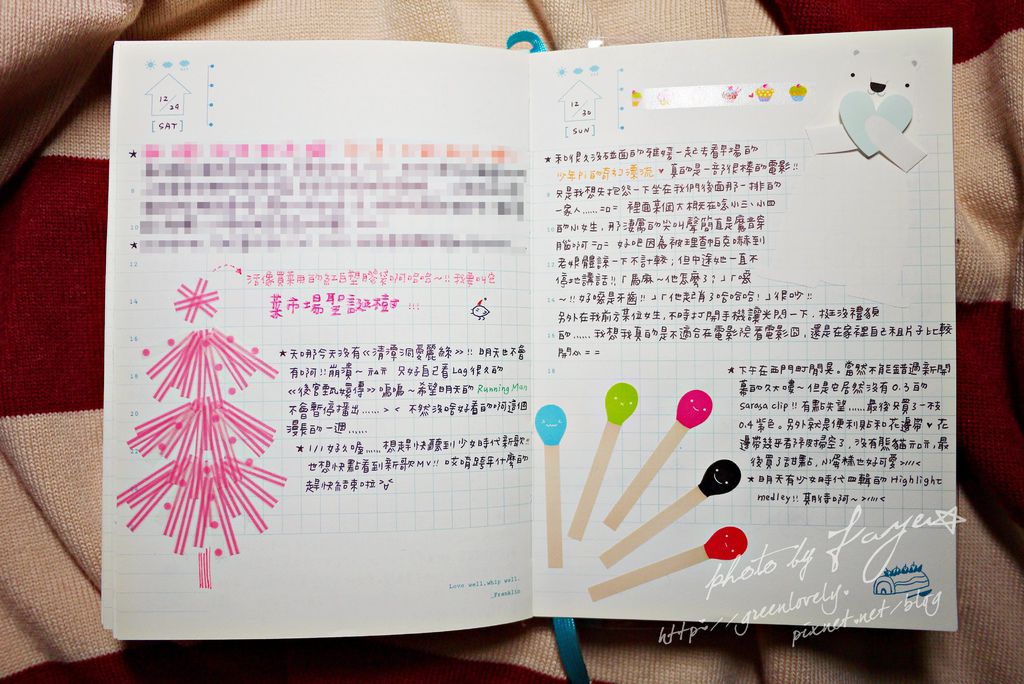 12/29
[SAT]
8
10
12
14
16
18
20
活像買菜用的紅白塑膠袋啊哈哈~!! 我要叫它
菜市場聖誕樹 !!!
★ 天啊今天沒有《清潭洞愛麗絲》!! 明天也不會
有啊!! 崩潰~ 只好自己看Lag很久的
《後宮甄嬛傳》嗚嗚~希望明天的 Running Man
不會暫停播出...... > < 不然沒啥好看的啊這個
漫長的一週......
★ 1/1 好久喔..... 想趕快聽到少女時代新歌!!
也想快點看到新歌MV!! 哎唷跨年什麼的
趕快結束啦
Love well,whip well.
_Franklin
12/30
[SUN]
★ 和很久沒碰面的雅婷一起去看早場的
少年Pi的奇幻漂流 ♥ 真的是一部很棒的電影!!
只是我想先抱怨一下坐在我們後面那一排的
一家人...... =口= 裡面某個大概在唸小三、小四
的小女生,那淒厲的尖叫聲簡直是魔音穿
腦啊 =口= 好吧因為被理查帕克嚇到
老娘體諒一下不計較;但中途她一直不
停地講話!!「馬麻~他怎麼了?」「噁
~!! 好噁是牙齒!!」「他起肖了哈哈哈!」很吵!!
另外在我前方某位女生,不時打開手機讓光閃一下,挺沒禮貌
的..... 我想我真的是不適合在電影院看電影囧,還是在家裡自己租片子比較
開心 = =
★ 下午在西門町閒晃。當然不能錯過新開
幕的久大嘍~但是它居然沒有0.3的
Sarasa clip!! 有點失望......最後只買了一枝
0.4紫色。另外就是便利貼和花邊帶 ♥ 在
邊帶幾乎看得被掃空了,沒有熊貓,最
後買了甜點,小蛋糕也好可愛 >////<
★ 明天有少女時代四輯的Highlight
medley!! 期待啊~ >////<
photo by Faye☆
http://greenlovely.
pixnet.net/blog